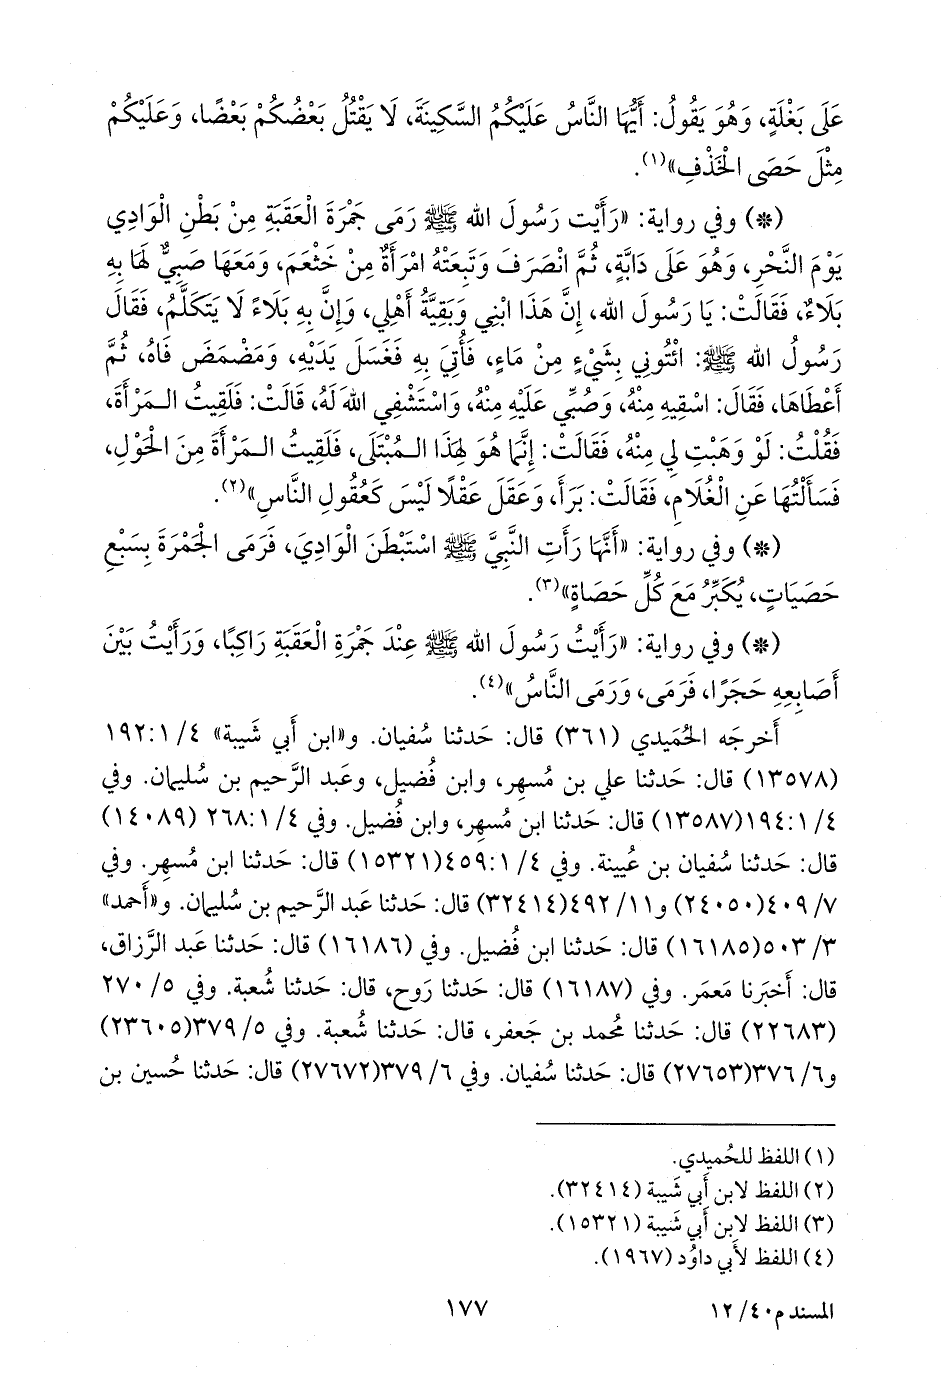 عَلَى بَغْلَةٍ، وَهُوَ يَقُولُ: أَيُّهَا النَّاسُ عَلَيْكُمُ السَّكِينَةَ، لَا يَقْتُلُ بَعْضُكُمْ بَعْضًا، وَعَلَيْكُمْ
مِثْلَ حَصَى الْخَذْفِ»(١).
(*) وفي رواية: «رَأَيْت رَسُولَ الله ﷺ رَمَى جَمْرَةَ الْعَقَبَةِ مِنْ بَطْنِ الْوَادِي
يَوْمَ النَّحْرِ، وَهُوَ عَلَى دَابَّةٍ، ثُمَّ انْصَرَفَ وَتَبِعَتْهُ امْرَأَةٌ مِنْ خَثْعَمَ، وَمَعَهَا صَبِيٌّ لَهَا بِهِ
بَلَاءٌ، فَقَالَتْ: يَا رَسُولَ الله، إِنَّ هَذَا ابْنِي وَبَقِيَّةُ أَهْلِي، وَإِنَّ بِهِ بَلَاءً لَا يَتَكَلَّمُ، فَقَالَ
رَسُولُ الله ﷺ: ائْتُونِي بِشَيْءٍ مِنْ مَاءٍ، فَأُتِيَ بِهِ فَغَسَلَ يَدَيْهِ، وَمَضْمَضَ فَاهُ، ثُمَّ
أَعْطَاهَا، فَقَالَ: اسْقِيهِ مِنْهُ، وَصُبِّي عَلَيْهِ مِنْهُ، وَاسْتَشْفِي اللهَ لَهُ، قَالَتْ: فَلَقِيتُ الـمَرْأَةَ،
فَقُلْتُ: لَوْ وَهَبْتِ لِي مِنْهُ، فَقَالَتْ: إِنَّمَا هُوَ لِهَذَا الـمُبْتَلَى، فَلَقِيتُ الـمَرْأَةَ مِنَ الْحَوْلِ،
فَسَأَلْتُهَا عَنِ الْغُلَامِ، فَقَالَتْ: بَرَأَ، وَعَقَلَ عَقْلًا لَيْسَ كَعُقُولِ النَّاسِ»(٢).
(*) وفي رواية: «أَنَّهَا رَأَتِ النَّبِيَّ ﷺ اسْتَبْطَنَ الْوَادِيَ، فَرَمَى الْجَمْرَةَ بِسَبْعِ
حَصَيَاتٍ، يُكَبِّرُ مَعَ كُلِّ حَصَاةٍ»(٣).
(*) وفي رواية: «رَأَيْتُ رَسُولَ الله ﷺ عِنْدَ جَمْرَةِ الْعَقَبَةِ رَاكِبًا، وَرَأَيْتُ بَيْنَ
أَصَابِعِهِ حَجَرًا، فَرَمَى، وَرَمَى النَّاسُ»(٤).
أَخرجَه الحُمَيدي (٣٦١) قال: حَدثنا سُفيان. و«ابن أَبي شَيبة» ٤/ ١:١٩٢
(١٣٥٧٨) قال: حَدثنا علي بن مُسهِر، وابن فُضيل، وعَبد الرَّحيم بن سُليمان. وفي
٤/ ١:١٩٤(١٣٥٨٧) قال: حَدثنا ابن مُسهِر، وابن فُضيل. وفي ٤/ ١:٢٦٨ (١٤٠٨٩)
قال: حَدثنا سُفيان بن عُيينة. وفي ٤/ ١:٤٥٩(١٥٣٢١) قال: حَدثنا ابن مُسهِر. وفي
٧/ ٤٠٩(٢٤٠٥٠) و١١/ ٤٩٢(٣٢٤١٤) قال: حَدثنا عَبد الرَّحيم بن سُليمان. و«أَحمد»
٣/ ٥٠٣(١٦١٨٥) قال: حَدثنا ابن فُضيل. وفي (١٦١٨٦) قال: حَدثنا عَبد الرَّزاق،
قال: أَخبَرنا مَعمَر. وفي (١٦١٨٧) قال: حَدثنا رَوح، قال: حَدثنا شُعبة. وفي ٥/ ٢٧٠
(٢٢٦٨٣) قال: حَدثنا مُحمد بن جَعفر، قال: حَدثنا شُعبة. وفي ٥/ ٣٧٩(٢٣٦٠٥)
و٦/ ٣٧٦(٢٧٦٥٣) قال: حَدثنا سُفيان. وفي ٦/ ٣٧٩(٢٧٦٧٢) قال: حَدثنا حُسين بن
(١) اللفظ للحُميدي.
(٢) اللفظ لابن أَبي شَيبة (٣٢٤١٤).
(٣) اللفظ لابن أَبي شَيبة (١٥٣٢١).
(٤) اللفظ لأَبي داوُد (١٩٦٧).
المسند م٤٠/ ١٢
١٧٧